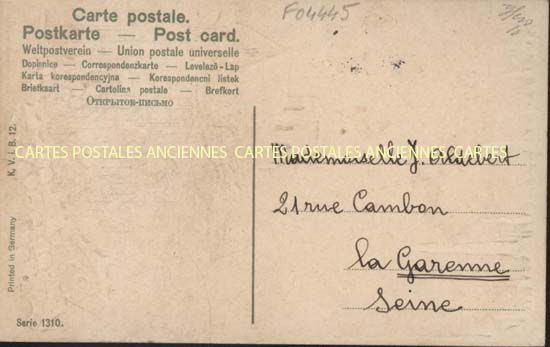 Carte postale.
Postkarte — Post card.
Weltpostverein — Union postale universelle
Dopisnice — Correspondenzkarte — Levelező-Lap
Karta korespondencyjna — Korespondencni listek
Briefkaart — Cartolina postale — Brefkort
Открытое-письмо
F04445
K. V. i. B. 12.
CARTES POSTALES ANCIENNES CARTES POSTALES ANCIENNES CARTES
Mademoiselle J.
21 rue Cambon
la Garenne
Seine
Printed in Germany
Serie 1310.